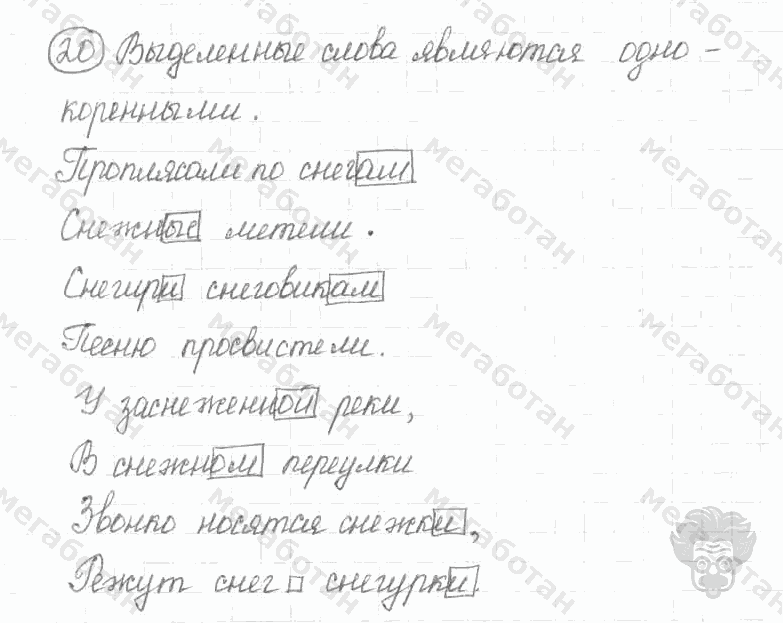 20 Выделенные слова являются одно-
коренными.
Проплясали по снегам
Снежные метели.
Снегири снеговикам
Песню просвистели.
У заснеженной реки,
В снежном переулки
Звонко носятся снежки,
Режут снег снегурки.